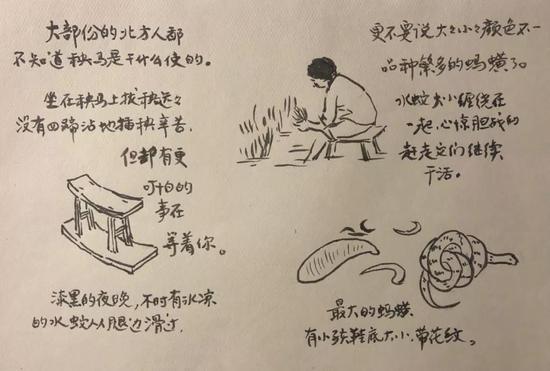 大部份的北方人都
不知道秧马是干什么使的。
坐在秧马上拔秧远々
没有四蹄沾地插秧辛苦,
但却有更
可怕的
事在
等着你。
漆黑的夜晚,不时有冰凉
的水蛇从腿边滑过,
更不要说大大小小颜色不一
品种繁多的蚂蟥了。
水蛇大小缠绕在
一起,心惊胆战的
赶走它们继续
干活。
最大的蚂蟥
有小孩鞋底大小,带花纹。